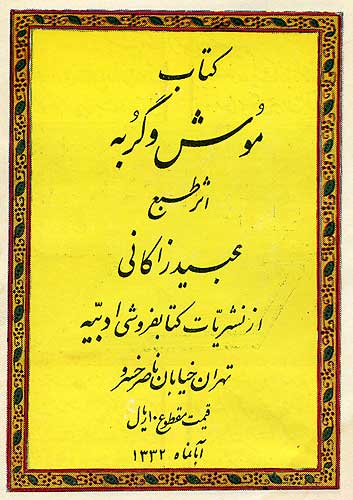 کتاب
موُش و گربُه
اثر طبع
عبید زاکانی
از نشریّات کتابفروشی ادبیّه
تهران خیابان ناصر خسرو
قیمت مقطوع ۱۰ ریال
آبانماه ۱۳۳۲